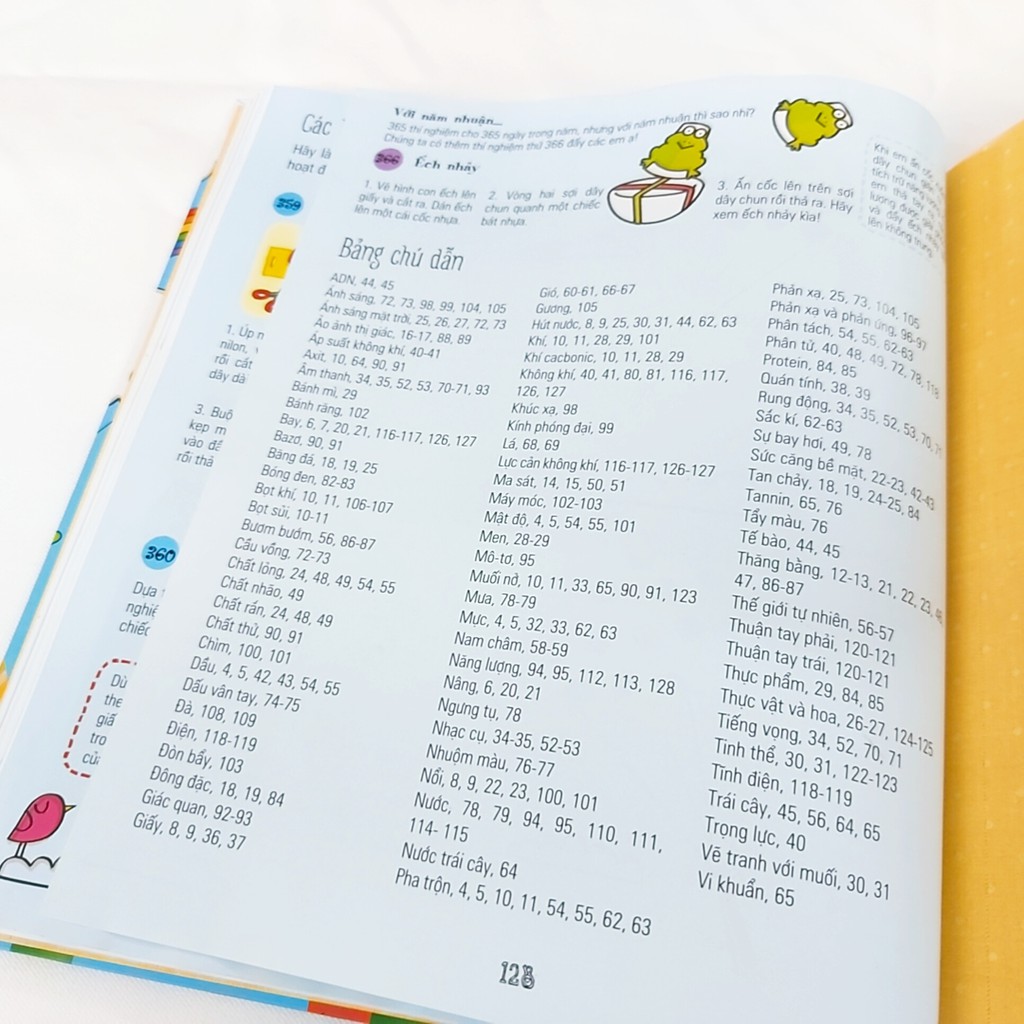 Các
Hãy là
hoạt đ
359
1. Úp n
nilon,
rồi cắt
dây dà
3. Buộ
kẹp m
vào đầ
rồi thả
360
Dựa
nghiệ
chiếc
Dù
the
giấ
tro
củ
Với năm nhuận...
365 thí nghiệm cho 365 ngày trong năm, nhưng với năm nhuận thì sao nhỉ?
Chúng ta có thêm thí nghiệm thứ 366 đấy các em ạ!
366 Ếch nhảy
1. Vẽ hình con ếch lên
giấy và cắt ra. Dán ếch
lên một cái cốc nhựa.
2. Vòng hai sợi dây
chun quanh một chiếc
bát nhựa.
3. Ấn cốc lên trên sợi
dây chun rồi thả ra. Hãy
xem ếch nhảy kìa!
Khi em ấn cốc
dây chun
tích trữ năng
em thả tay
lượng được
và đẩy ếch
lên không trung.
Bảng chú dẫn
ADN, 44, 45
Ánh sáng, 72, 73, 98, 99, 104, 105
Ánh sáng mặt trời, 25, 26, 27, 72, 73
Ảo ảnh thị giác, 16-17, 88, 89
Áp suất không khí, 40-41
Axit, 10, 64, 90, 91
Âm thanh, 34, 35, 52, 53, 70-71, 93
Bánh mì, 29
Bánh răng, 102
Bay, 6, 7, 20, 21, 116-117, 126, 127
Bazơ, 90, 91
Băng đá, 18, 19, 25
Bóng đen, 82-83
Bọt khí, 10, 11, 106-107
Bọt sủi, 10-11
Bươm bướm, 56, 86-87
Cầu vồng, 72-73
Chất lỏng, 24, 48, 49, 54, 55
Chất nhão, 49
Chất rắn, 24, 48, 49
Chất thử, 90, 91
Chìm, 100, 101
Dầu, 4, 5, 42, 43, 54, 55
Dấu vân tay, 74-75
Đà, 108, 109
Điện, 118-119
Đòn bẩy, 103
Đông đặc, 18, 19, 84
Giác quan, 92-93
Giấy, 8, 9, 36, 37
Gió, 60-61, 66-67
Gương, 105
Hút nước, 8, 9, 25, 30, 31, 44, 62, 63
Khí, 10, 11, 28, 29, 101
Khí cacbonic, 10, 11, 28, 29
Không khí, 40, 41, 80, 81, 116, 117,
126, 127
Khúc xạ, 98
Kính phóng đại, 99
Lá, 68, 69
Lực cản không khí, 116-117, 126-127
Ma sát, 14, 15, 50, 51
Máy móc, 102-103
Mật độ, 4, 5, 54, 55, 101
Men, 28-29
Mô-tơ, 95
Muối nở, 10, 11, 33, 65, 90, 91, 123
Mưa, 78-79
Mực, 4, 5, 32, 33, 62, 63
Nam châm, 58-59
Năng lượng, 94, 95, 112, 113, 128
Nâng, 6, 20, 21
Ngưng tụ, 78
Nhạc cụ, 34-35, 52-53
Nhuộm màu, 76-77
Nổi, 8, 9, 22, 23, 100, 101
Nước, 78, 79, 94, 95, 110, 111,
114- 115
Nước trái cây, 64
Pha trộn, 4, 5, 10, 11, 54, 55, 62, 63
Phản xạ, 25, 73, 104, 105
Phản xạ và phản ứng, 96-97
Phân tách, 54, 55, 62-63
Phân tử, 40, 48, 49, 72, 78, 118
Protein, 84, 85
Quán tính, 38, 39
Rung động, 34, 35, 52, 53, 70, 71
Sắc kí, 62-63
Sự bay hơi, 49, 78
Sức căng bề mặt, 22-23, 42-43
Tan chảy, 18, 19, 24-25, 84
Tannin, 65, 76
Tẩy màu, 76
Tế bào, 44, 45
Thăng bằng, 12-13, 21, 22, 23, 46
47, 86-87
Thế giới tự nhiên, 56-57
Thuận tay phải, 120-121
Thuận tay trái, 120-121
Thực phẩm, 29, 84, 85
Thực vật và hoa, 26-27, 124-125
Tiếng vọng, 34, 52, 70, 71
Tinh thể, 30, 31, 122-123
Tĩnh điện, 118-119
Trái cây, 45, 56, 64, 65
Trọng lực, 40
Vẽ tranh với muối, 30, 31
Vi khuẩn, 65
128